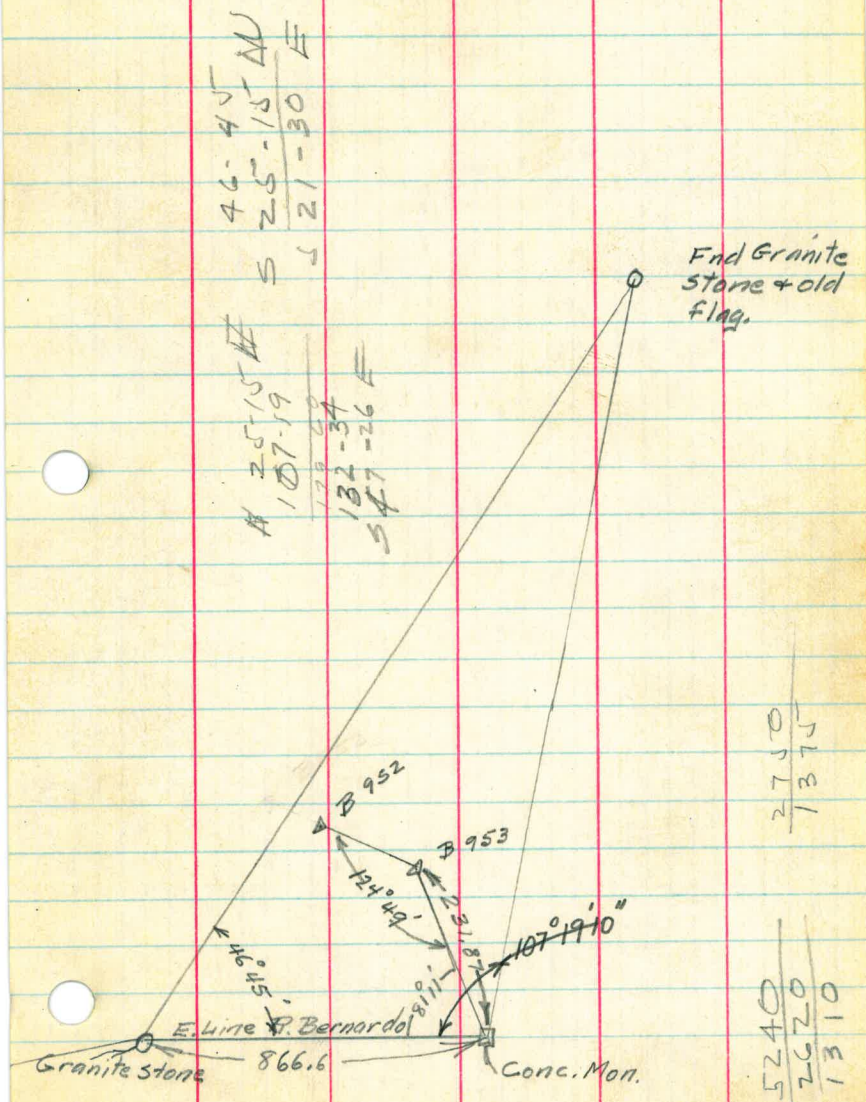 46-45
S 25-15 W
S 21-30 E
N 25-15 W
107-19
179 60
132-34
S 47-26 E
Fnd Granite
stone + old
flag.
B 952
B 953
124° 49'
231.87
107° 19' 10"
81° 11'
46° 45'
E. Line R. Bernardo
866.6
Granite stone
Conc. Mon.
2750
1375
5240
2620
1310